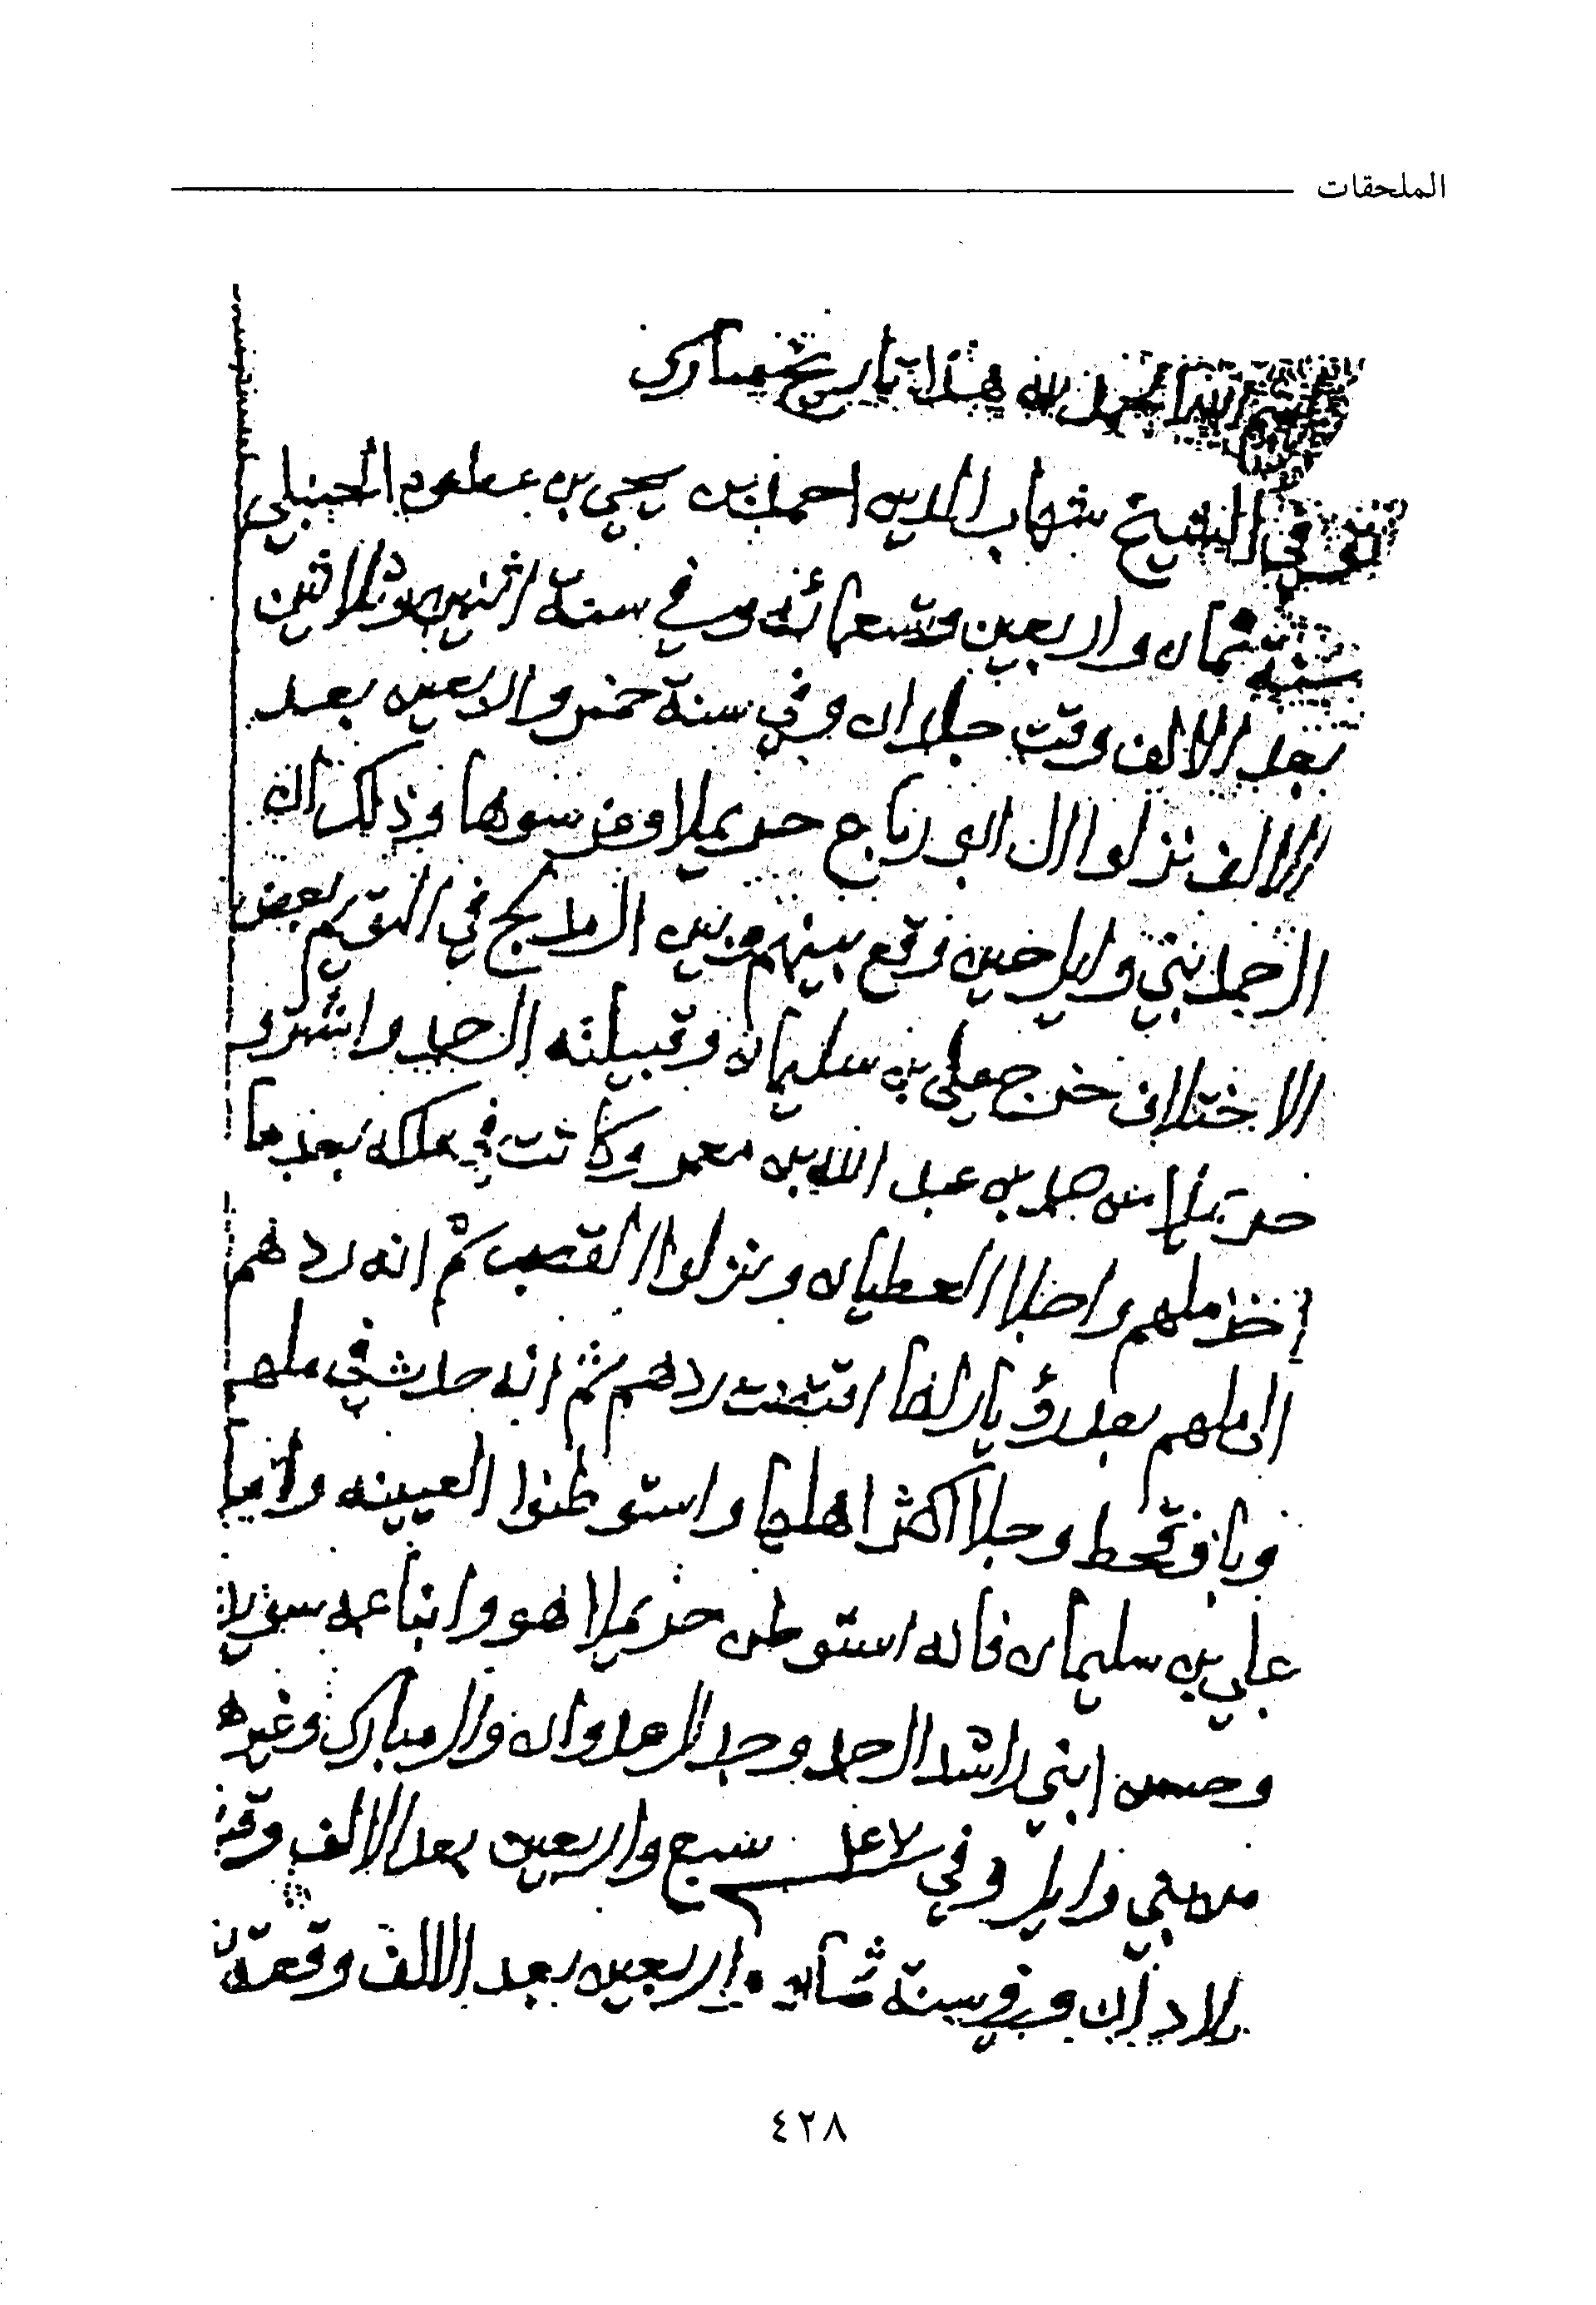 الملحقات
بسم الله الحمد لله هذا تاريخ مبارك
توفي في الشيخ شهاب الدين احمد بن يحيى بن عطوه الحنبلي
سنة ثمان واربعين وتسعمائه وفي سنة اثنين وثلاثين
بعد الالف وقت جلاان وفي سنة خمس والاربعين بعد
الالف نزلوا ال ابو رباح حريملا وغرسوها وذلك ان
ال حمد بني وايل حين وقع بينهم وبين ال مدلج في التويم بعض
الاختلاف خرج علي بن سليمان وقبيلته ال حمد واشترو
حريملا من حمد بن عبد الله بن معمر وكانت في ملكه بعد ما
اخذ ملهم واجلا العطيان ونزلوا القصب ثم انه ردهم
الى ملهم بعد رؤيا راها اقتضت ردهم ثم انه حدث في ملهم
وبا وقحط وجلا اكثر اهلها واستوطنوا العيينه واما
علي بن سليمان فانه استوطن حريملا هو وابناعمه سويد
وحسن ابني راشد ال حمد وجد العدوان وال مبارك وغيرهم
من بني وايل وفي ١٠٤٧ سبع واربعين بعد الالف وقت
بلادان وفي سنة ثمان واربعين بعد الالف وقعة
٤٢٨